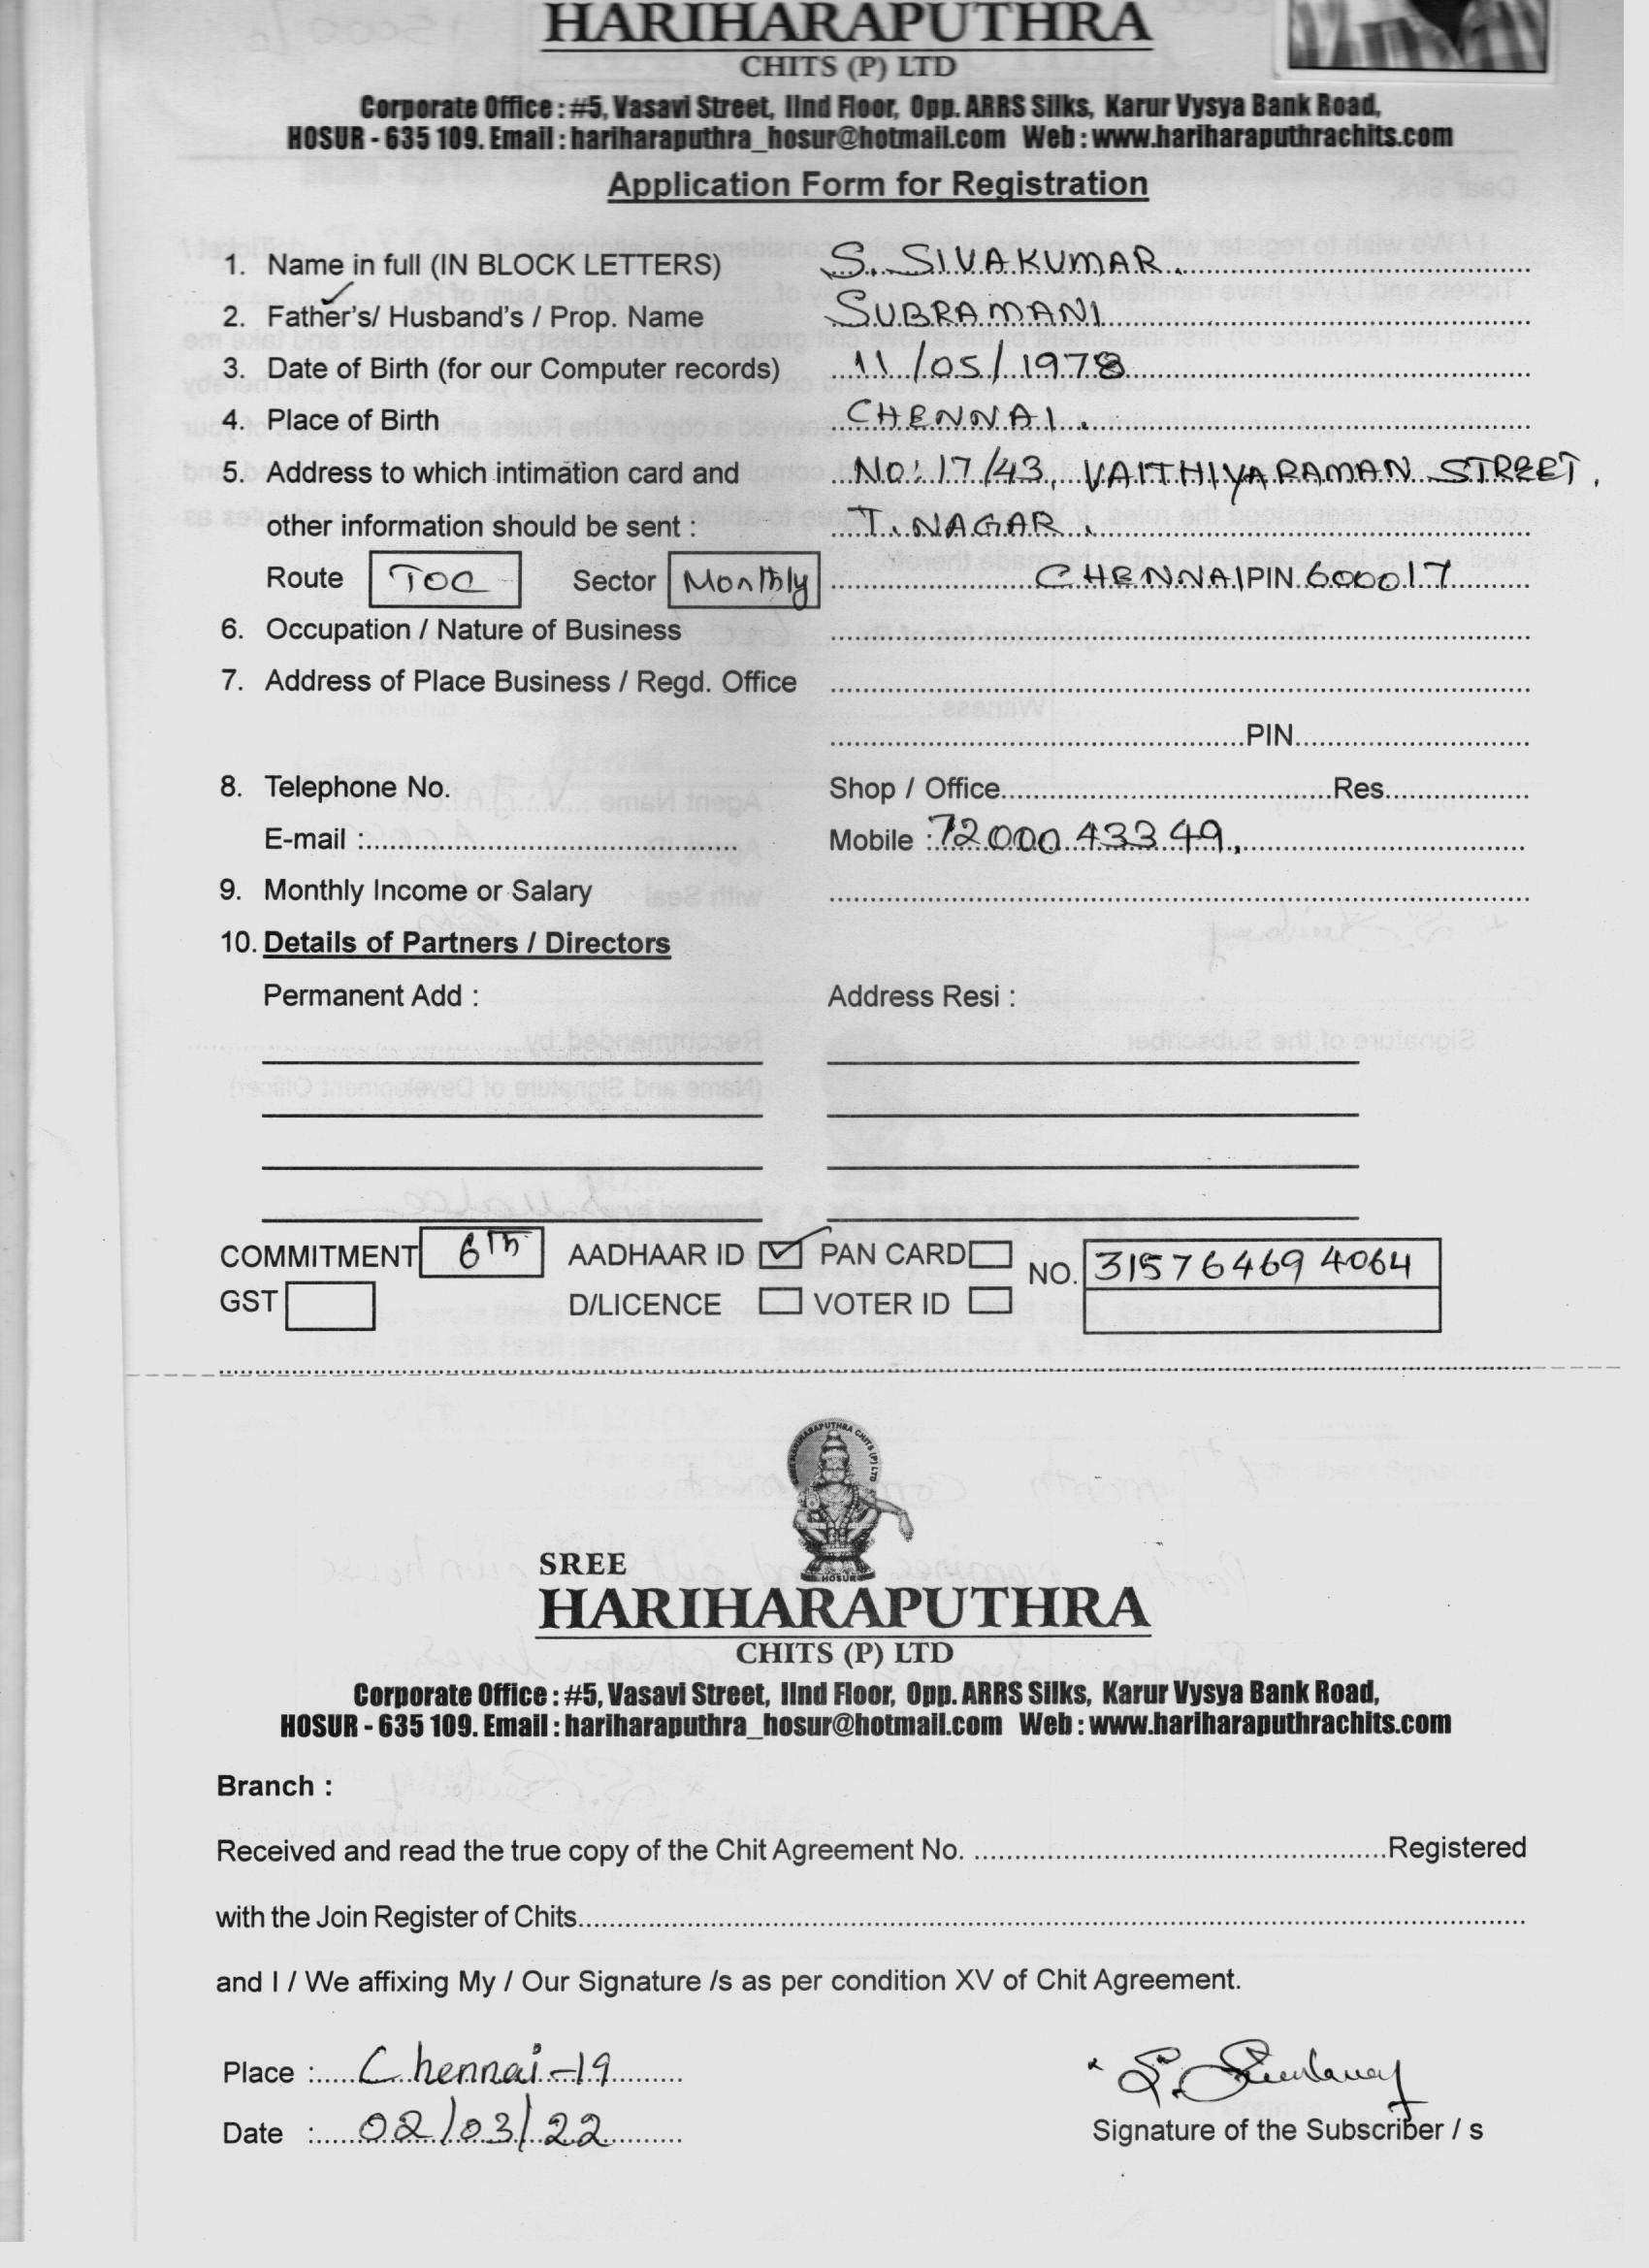 HARIHARAPUTHRA
CHITS (P) LTD
Corporate Office : #5, Vasavi Street, IInd Floor, Opp. ARRS Silks, Karur Vysya Bank Road,
HOSUR - 635 109. Email : hariharaputhra_hosur@hotmail.com Web : www.hariharaputhrachits.com
Application Form for Registration
1. Name in full (IN BLOCK LETTERS) S. SIVAKUMAR.
2. Father's/ Husband's / Prop. Name SUBRAMANI
3. Date of Birth (for our Computer records) 11/05/1978
4. Place of Birth CHENNAI.
5. Address to which intimation card and NO: 17/43, VAITHIYARAMAN STREET,
other information should be sent : T. NAGAR.
Route TOC Sector Monthly CHENNAI PIN 600017
6. Occupation / Nature of Business
7. Address of Place Business / Regd. Office
PIN
8. Telephone No. Shop / Office Res.
E-mail : Mobile : 72000 43349,
9. Monthly Income or Salary
10. Details of Partners / Directors
Permanent Add : Address Resi :
COMMITMENT 6th AADHAAR ID ✓ PAN CARD NO. 31576469 4064
GST D/LICENCE VOTER ID
SREE HARIHARAPUTHRA CHITS (P) LTD
HOSUR
SREE
HARIHARAPUTHRA
CHITS (P) LTD
Corporate Office : #5, Vasavi Street, IInd Floor, Opp. ARRS Silks, Karur Vysya Bank Road,
HOSUR - 635 109. Email : hariharaputhra_hosur@hotmail.com Web : www.hariharaputhrachits.com
Branch :
Received and read the true copy of the Chit Agreement No. Registered
with the Join Register of Chits
and I / We affixing My / Our Signature /s as per condition XV of Chit Agreement.
Place : Chennai-19
Date : 02/03/22
Signature of the Subscriber / s